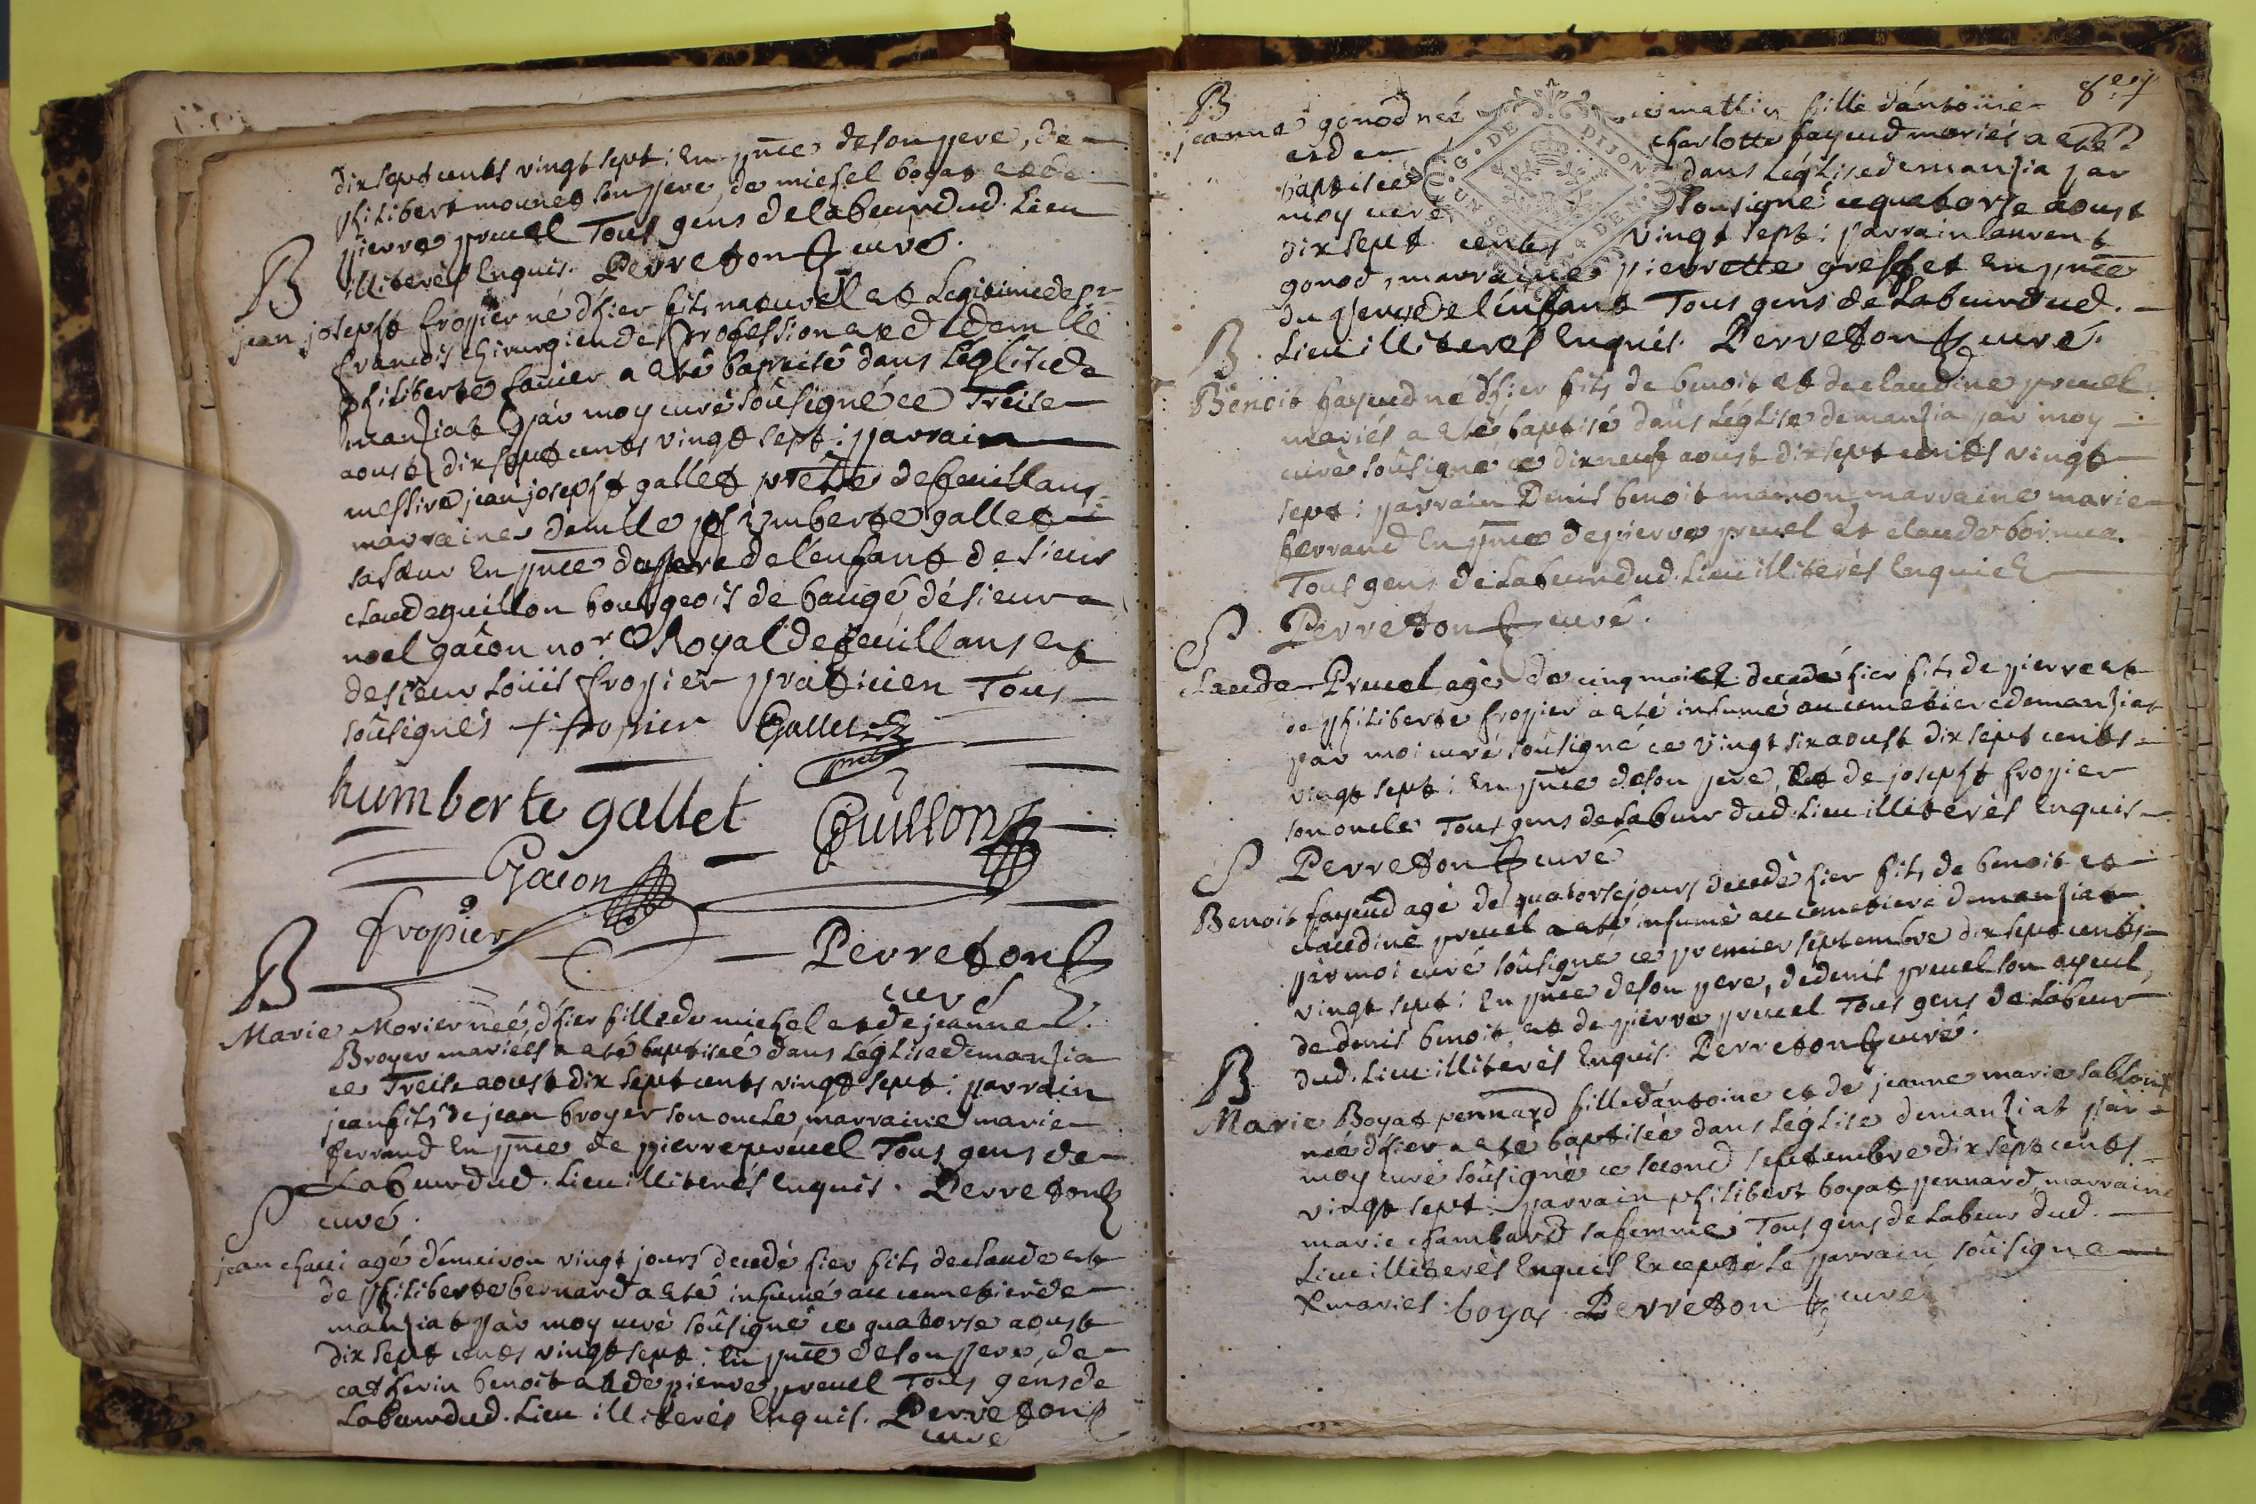 dix sept cents vingt sept : En pnce de son pere, de
philibert mounet son pere de michel boyat et de
pierre pruel Tous gens de labeur dud. Lieu
illiterés Enquis. Perreton curé.
B
jean joseph fropier né d'hier fils naturel et Legitime de sr
francois chirurgien de profession et de demlle
philiberte a été baptisé dans L'église de
manziat par moy curé soûsigné ce Treise
aoust dix sept cents vingt sept : parrain
messire jean joseph gallet prêtre de feuillans
marraine demlle humberte gallet
sa sœur En pnce du pere de l'enfant de sieur
claude guillon bourgeois de baugé de sieur
noel gacon nore Royal de feuillans et
de sieur Loüis fropier praticien Tous
soûsignés fropier Gallet
ptre
humberte gallet Guillon
Gacon
fropier
Perreton
curé
B
Marie Morier née d'hier fille de michel et de jeanne
Broyer mariés a eté baptisée dans L'église de manzia
ce Treise aoust dix sept cents vingt sept : parrain
jean fils de jean broyer son oncle, marraine marie
ferrand En pnce de pierre pruel Tous gens de
Labeur dud. Lieu illiterés Enquis. Perreton
curé.
S
jean agé d'environ vingt jours decedé hier fils de claude et
de philiberte bernard a eté inhumé au cimetiere de
manziat par moy curé soûsigné ce quatorse aoust
dix sept cents vingt sept : En pnce de son pere, de
catherin benoit et de pierre pruel Tous gens de
Labeur dud. Lieu illiterés Enquis. Perreton
curé
B
jeanne gonod née ce mattin fille d'antoine
et de charlotte fayeud mariés a eté
baptisée dans L'église de manzia par
moy curé soûsigné ce quatorse aoust
dix sept cents vingt sept : parrain laurent
gonod, marraine pierrette greffet En pnce
du pere de l'enfant Tous gens de Labeur dud.
Lieu illiterés Enquis. Perreton curé.
G. DE DIJON
B
Benoit fayeud né d'hier fils de benoit et de claudine pruel
mariés a eté baptisé dans L'église de manzia par moy
curé soûsigné ce dix neuf aoust dix sept cents vingt
sept : parrain Denis benoit marraine marie
ferrand En pnce de pierre pruel et claude
Tous gens de Labeur dud. Lieu illiterés Enquis
Perreton curé.
S
Claude Pruel agé de cinq mois decedé hier fils de pierre et
de philiberte fropier a eté inhumé au cimetiere de manziat
par moi curé soûsigné ce vingt six aoust dix sept cents
vingt sept : En pnce de son pere, et de joseph fropier
son oncle Tous gens de Labeur dud. Lieu illiterés Enquis
Perreton curé
S
Benoit fayeud agé de quatorse jours decedé hier fils de benoit et
claudine pruel a eté inhumé au cimetiere de manziat
par moi curé soûsigné ce premier septembre dix sept cents
vingt sept : En pnce de son pere, de denis pruel son ayeul
de denis benoit, et de pierre pruel Tous gens de Labeur
dud. Lieu illiterés Enquis. Perreton curé.
B
Marie Boyat pennard fille d'antoine et de jeanne marie
née d'hier a eté baptisée dans L'église de manziat par
moy curé soûsigné ce second septembre dix sept cents
vingt sept : parrain philibert boyat pennard, marraine
marie chambard sa femme Tous gens de Labeur dud.
Lieu illiterés Enquis Excepté Le parrain soûsigné
X mariés boyat Perreton curé